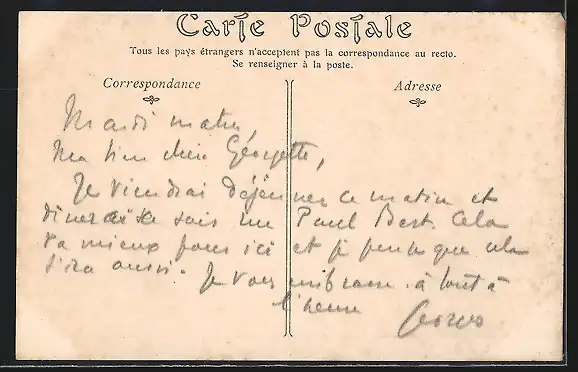 Carte Postale
Tous les pays étrangers n'acceptent pas la correspondance au recto.
Se renseigner à la poste.
Correspondance
Adresse
Mardi matin,
Ma bien chère Georgette,
Je viendrai déjeuner ce matin et
dînerai ce soir Paul Best. Cela
va mieux pour ici et je pense que cela
ira aussi. Je vous embrasse. à tout à
l'heure